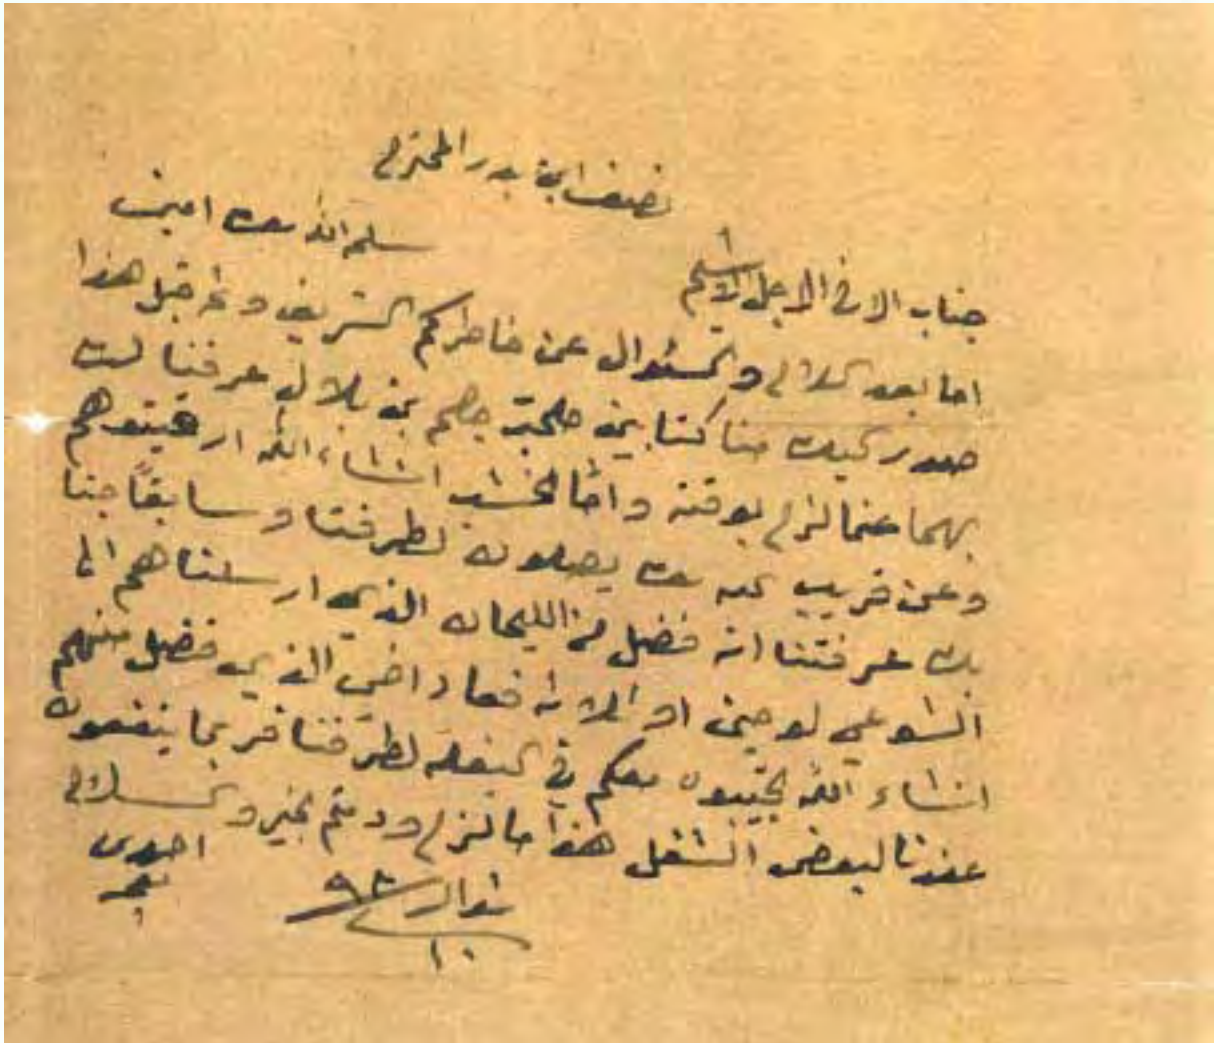 نصف ابن بدر المحترم
سلمه الله امين
جناب الاخ الاجل الاشيم
اما بعد السلام والسئوال عن خاطركم الشريف ومن قبل هذا
صدر اليك منا كتابين صحبة جهم بن بلال عرفنا لك
بهما عنما لزم بوقته واما الخشب انشاء الله ارقيتوهم
وعن قريب يصلون لطرفنا وسابقاً جنا
بك عرفتنا انه فضل من الليحان الذي ارسلناهم الى
الشوعي لوحين او ثلاثه فعاد اخي الذي فضل منهم
انشاء الله تجيبون معكم في البغله لطرفنا فربما ينفعون
عندنا لبعض الشغل هذا ما لزم ودمتم بخير والسلام
شوال ٩٣
١٠